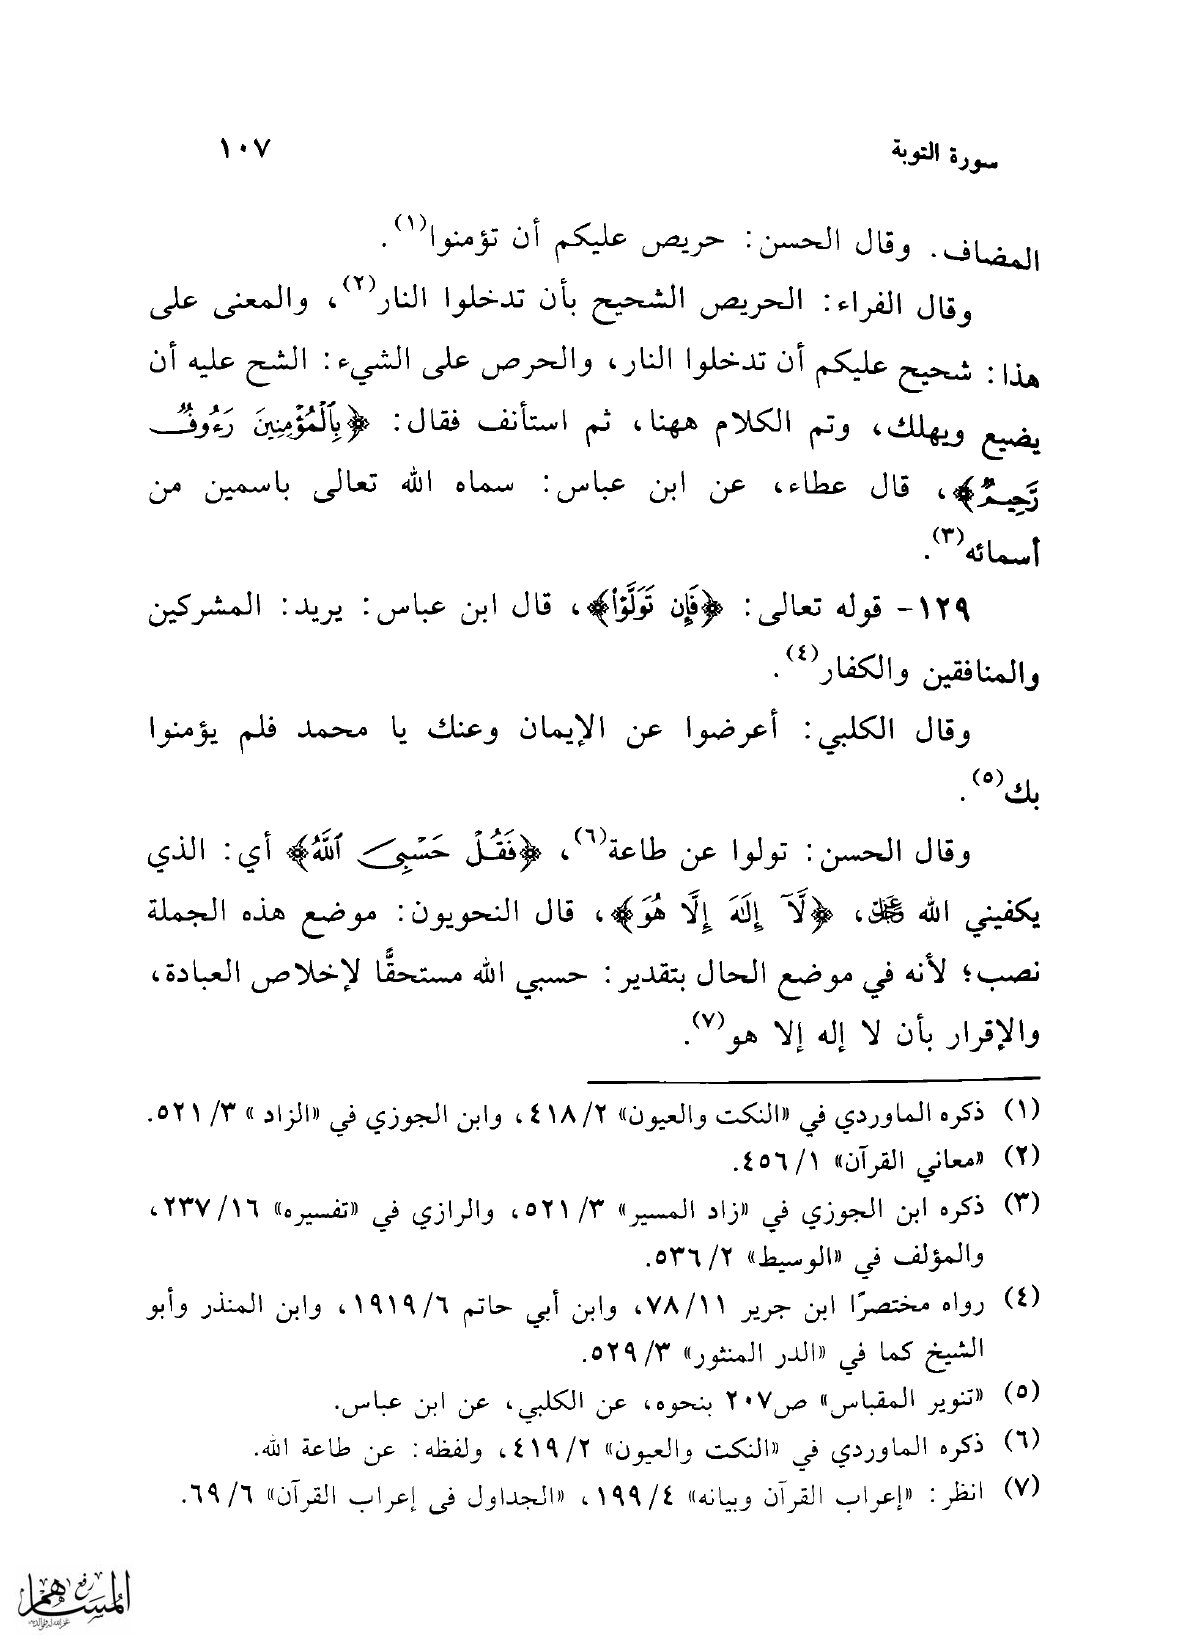 سورة التوبة ١٠٧
المضاف. وقال الحسن: حريص عليكم أن تؤمنوا(١).
وقال الفراء: الحريص الشحيح بأن تدخلوا النار(٢)، والمعنى على
هذا: شحيح عليكم أن تدخلوا النار، والحرص على الشيء: الشح عليه أن
يضيع ويهلك، وتم الكلام ههنا، ثم استأنف فقال: ﴿بِٱلْمُؤْمِنِينَ رَءُوفٌ
رَّحِيمٌ﴾، قال عطاء، عن ابن عباس: سماه الله تعالى باسمين من
أسمائه(٣).
١٢٩- قوله تعالى: ﴿فَإِن تَوَلَّوْاْ﴾، قال ابن عباس: يريد: المشركين
والمنافقين والكفار(٤).
وقال الكلبي: أعرضوا عن الإيمان وعنك يا محمد فلم يؤمنوا
بك(٥).
وقال الحسن: تولوا عن طاعة(٦)، ﴿فَقُلْ حَسْبِىَ ٱللَّهُ﴾ أي: الذي
يكفيني الله ﷻ، ﴿لَآ إِلَٰهَ إِلَّا هُوَ﴾، قال النحويون: موضع هذه الجملة
نصب؛ لأنه في موضع الحال بتقدير: حسبي الله مستحقًّا لإخلاص العبادة،
والإقرار بأن لا إله إلا هو(٧).
(١) ذكره الماوردي في «النكت والعيون» ٢/ ٤١٨، وابن الجوزي في «الزاد » ٣/ ٥٢١.
(٢) «معاني القرآن» ١/ ٤٥٦.
(٣) ذكره ابن الجوزي في «زاد المسير» ٣/ ٥٢١، والرازي في «تفسيره» ١٦/ ٢٣٧،
والمؤلف في «الوسيط» ٢/ ٥٣٦.
(٤) رواه مختصرًا ابن جرير ١١/ ٧٨، وابن أبي حاتم ٦/ ١٩١٩، وابن المنذر وأبو
الشيخ كما في «الدر المنثور» ٣/ ٥٢٩.
(٥) «تنوير المقباس» ص٢٠٧ بنحوه، عن الكلبي، عن ابن عباس.
(٦) ذكره الماوردي في «النكت والعيون» ٢/ ٤١٩، ولفظه: عن طاعة الله.
(٧) انظر: «إعراب القرآن وبيانه» ٤/ ١٩٩، «الجداول في إعراب القرآن» ٦/ ٦٩.